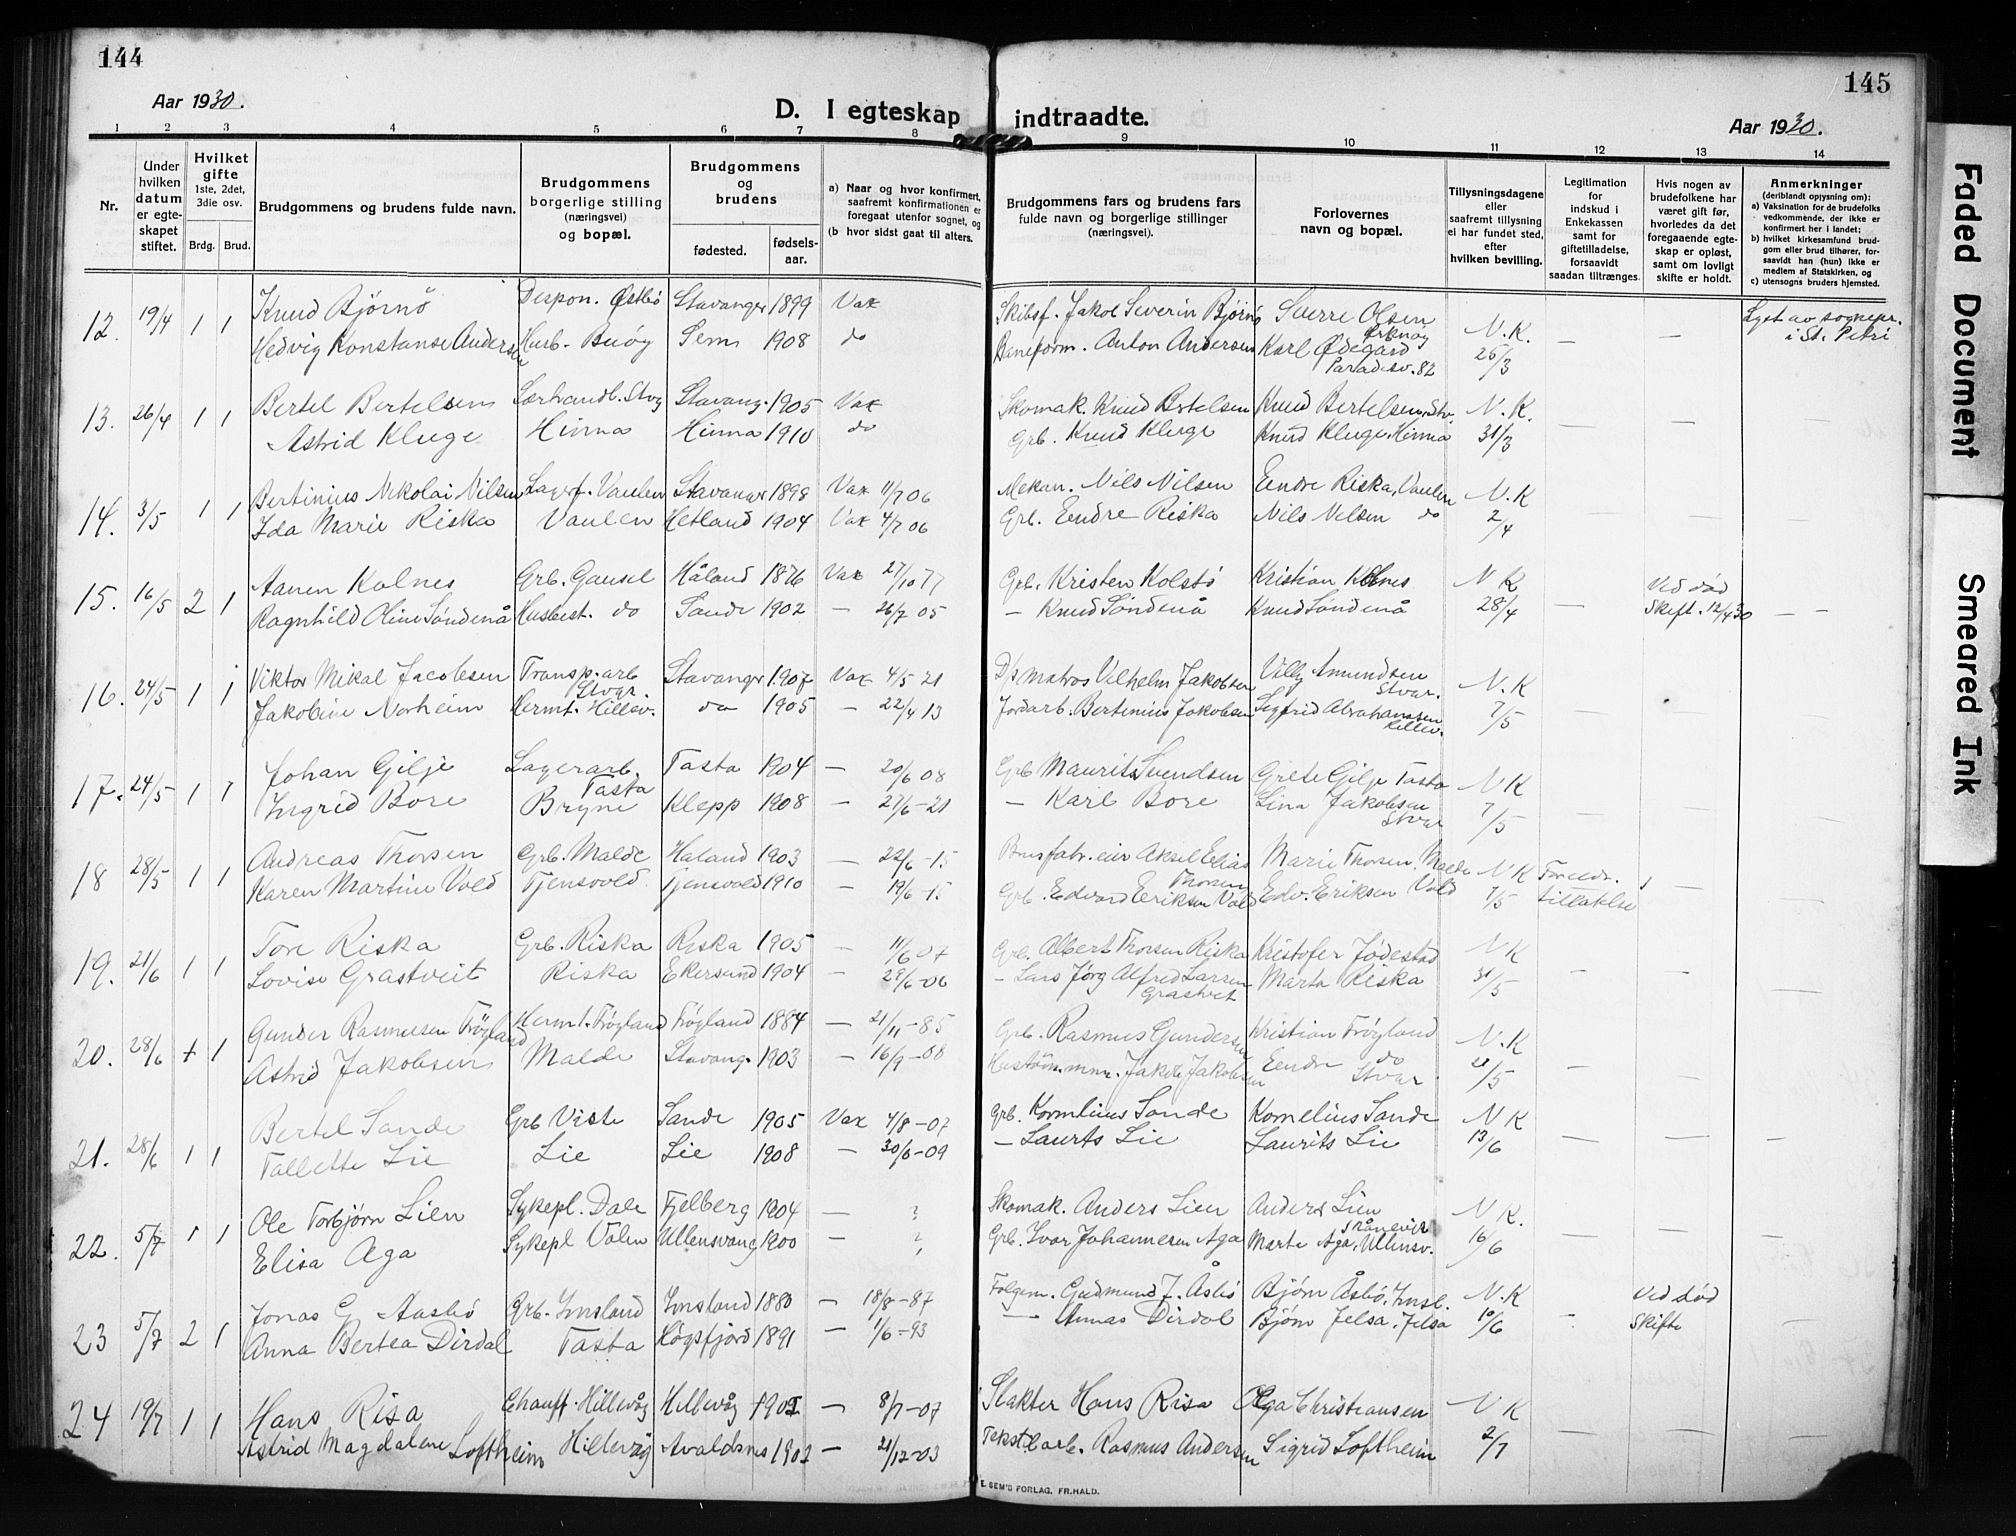 144
Aar 1930.
D. I egteskap indtraadte.
145
Aar 1930.
1 2 3 4 5 6 7 8 9 10 11 12 13 14
Nr.
Under hvilken datum er egte-skapet stiftet.
Hvilket gifte 1ste, 2det, 3die osv.
Brdg. Brud.
Brudgommens og brudens fulde navn.
Brudgommens borgerlige stilling (næringsvei) og bopæl.
Brudgommens og brudens
fødested. fødsels-aar.
a) Naar og hvor konfirmert, saafremt konfirmationen er foregaat utenfor sognet, og
(b hvor sidst gaat til alters.
Brudgommens fars og brudens fars fulde navn og borgerlige stillinger (næringsvei).
Forlovernes navn og bopæl.
Tillysningsdagene eller saafremt tillysning ei har fundet sted, efter hvilken bevilling.
Legitimation for indskud i Enkekassen samt for giftetilladelse, forsaavidt saadan tiltrænges.
Hvis nogen av brudefolkene har været gift før, hvorledes da det foregaaende egte-skap er opløst, samt om lovligt skifte er holdt.
Anmerkninger (deriblandt opjysning om):
a) Vaksination for de brudefolks vedkommende, der ikke er konfirmert her i landet;
b) hvilket kirkesamfund brud-gom eller brud tilhører, for-saavidt han (hun) ikke er medlem af Statskirken, og
c) utensogns bruders hjemsted.
12. 19/4 1 1 Knud Bjørnø Dispon. Østbø Stavanger 1899 Vax Skibsf. Jakob Severin Bjørnø Sverre Olsen N.K. Lyst av sognepr. i St. Petri
Hedvig Konstanse Andersen Husb. Buøy Sem 1908 do Baneform. Anton Andersen Karl Ødegard Paradisv. 82 25/3 — —
13. 26/4 1 1 Bertel Bertelsen Særhandl. Stvg Stavang. 1905 Vax Skomak. Knud Bertelsen Knud Bertelsen, Stv. N.K.
Astrid Kluge Hinna Hinna 1910 do Grb. Knud Kluge Knud Kluge, Hinna 31/3 — —
14. 3/5 1 1 Bertinius Nikolai Nilsen Lagerf. Vaulen Stavanger 1898 Vax 11/7 06 Mekan. Nils Nilsen Eendre Riska, Vaulen N.K
Ida Marie Riska Vaulen Hetland 1904 Vax 4/7 06 Grb. Eendre Riska Nils Nilsen do 2/4 — — —
15. 16/5 2 1 Aanen Kolnes Grb. Gausel Håland 1876 Vax 27/10 77 Grb. Kristen Kolstø Kristian Kolnes N K Ved død
Ragnhild Oline Søndenå Husbest. do Sande 1902 — 26/7 05 — Knud Søndenå Knud Søndenå 28/4 — Skift. 12/4 30 — —
16. 24/5 1 1 Viktor Mikal Jacobsen Transp.arb Stvgr. Stavanger 1907 Vax 4/5 21 D/s matros Vilhelm Jakobsen Villy Amundsen Stvgr. N.K
Jakobine Norheim Hermt. Hillev. do 1905 — 22/4 13 Jordarb. Bertinius Jakobsen Sigfrid Abrahamsen Hillev. 7/5 — —
17. 24/5 1 1 Johan Gilje Lagerarb. Tasta Tasta 1904 — 20/6 08 Grb Maurits Svendsen Grete Gilje Tasta N K
Ingrid Bore Bryne Klepp 1908 — 27/6-21 — Karl Bore Lina Jakobsen Stvgr 7/5 — —
18 28/5 1 1 Andreas Thorsen Grb. Malde Haland 1903 — 22/6-15 Brusfabr.eier Aksel Elias Thorsen Marie Thorsen Malde N K
Karen Martine Vold Tjensvold Tjensvold 1910 — 19/6-15 Grb. Edvard Eriksen Vold Edv. Eriksen Vold 7/5 tillatelse —
19. 21/6 1 1 Tore Riska Grb. Riska Riska 1905 — 11/6 07 Grb. Albert Thorsen Riska Kristofer Jødestad N K
Lovise Grastveit Riska Ekersund 1904 — 29/6-06 — Lars Jørg Alfred Larsen Grastveit Marta Riska 31/5 — — —
20. 28/6 1 1 Gunder Rasmussen Frøyland Hermt. Frøyland Frøyland 1884 — 21/11-85 Grb. Rasmus Gundersen Kristian Frøyland N.K
Astrid Jakobsen Malde Stavang. 1903 — 16/9-08 Jakob Jakobsen Eendre do Stvgr. 21/5 — —
21. 28/6 1 1 Bertel Sande Grb Viste Sande 1905 Vax 4/8-07 Grb. Kornelius Sande Kornelius Sande N K
Tallette Lie Lie Lie 1908 — 30/6-09 — Laurits Lie Laurits Lie 13/6 — — —
22. 5/7 1 1 Ole Torbjørn Lien Sykepl. Dale Fjelberg 1904 — ? Skomak. Anders Lien Anders Lien Skånevik N K.
Elisa Aga Sykepl Valen Ullensvang 1900 — ? Grb. Ivar Johannesen Aga Marta Aga, Ullensv. 16/6 — — —
23 5/7 2 1 Jonas G. Aasbø Grb. Imsland Imsland 1880 — 18/8-87 Folgem. Gudmund J. Åsbø Bjørn Åsbø, Imsl. N.K Ved død
Anna Bertea Dirdal Tasta Høgsfjord 1891 — 1/6-93 — Annas Dirdal Bjørn Jelsa, Jelsa 10/6 — Skifte
24 19/7 1 1 Hans Risa Chauff. Hillevåg Hillevåg 1902 — 8/7-07 Slakter Hans Risa Olga Christiansen N K
Astrid Magdalene Loftheim Hillevåg Avaldsnes 1902 — 21/12-03 Tekstilarb. Rasmus Andersen Sigrid Loftheim 2/7 — — —
E. SEM'S FORLAG, FR.HALD.
Faded Document
Smeared Ink